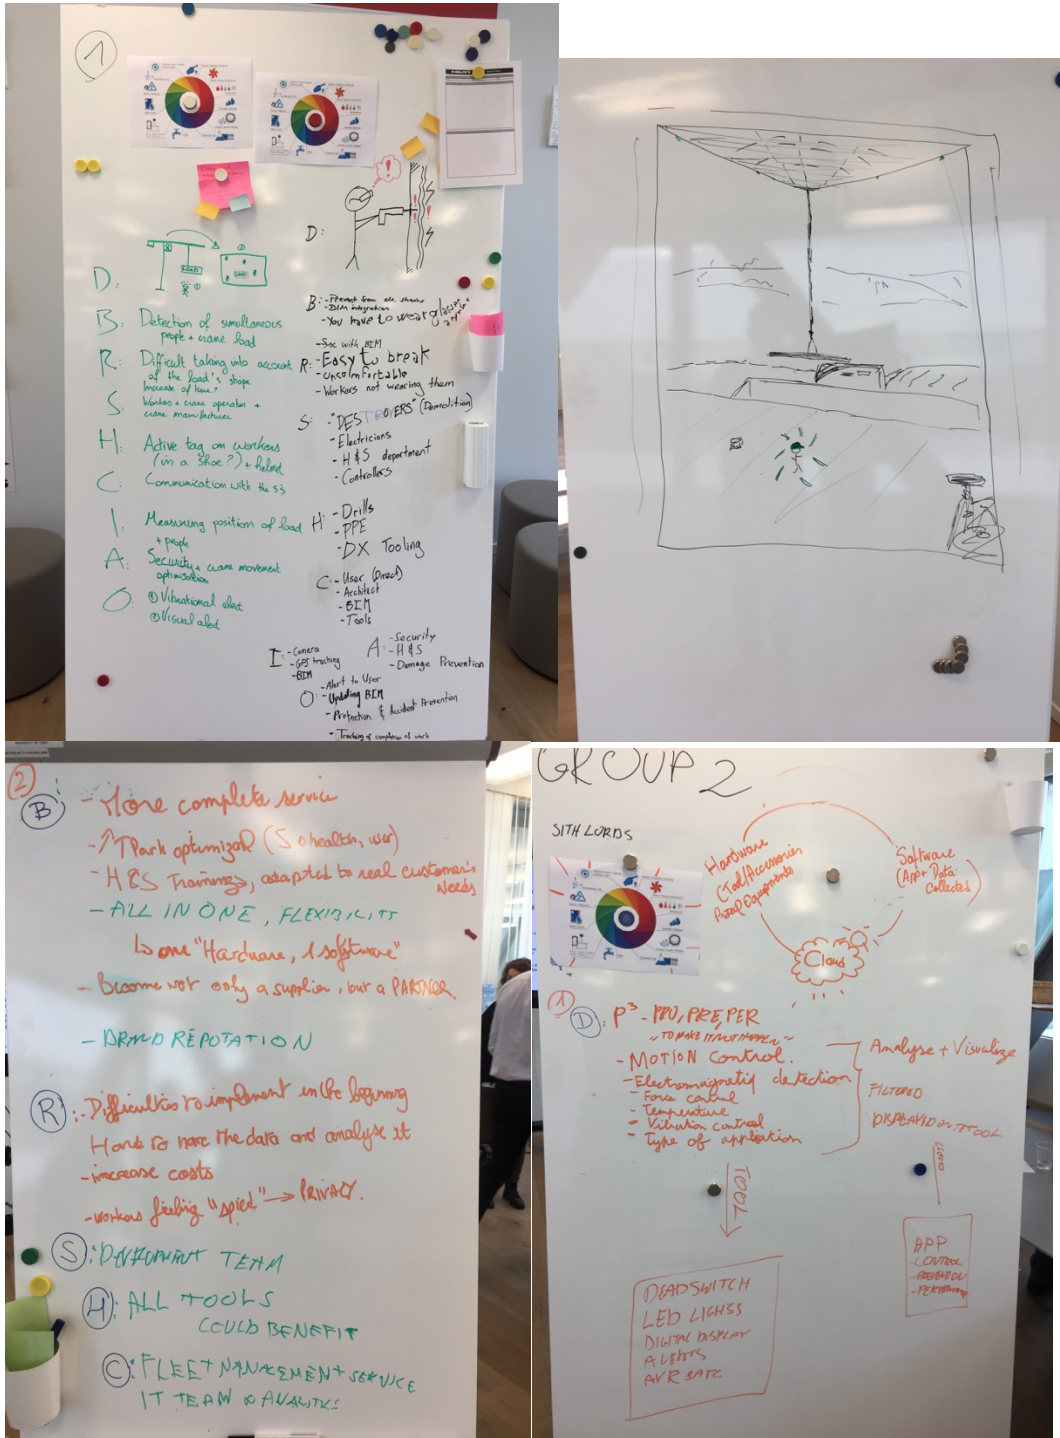 1
D:
B: Detection of simultaneous
people + crane load
R: Difficult taking into account
of the load's shape
Increase of time?
S: Workers + crane operator +
crane manufacturer
H: Active tag on workers
(in a shoe?) + helmet
C: Communication with the
I: Measuring position of load
+ people
A: Security + crane movement
optimisation
O: ① Vibrational alert
② Visual alert
D:
B: - Prevent from ele. shocks
- BIM integration
- You have to wear glasses
- Sync with BIM
R: - Easy to break
- Uncomfortable
- Workers not wearing them
S: - "DESTROYERS" (Demolition)
- Electricians
- H & S department
- Controllers
H: - Drills
- PPE
- DX Tooling
C: - User (Direct)
- Architect
- BIM
- Tools
I: - Camera
- GPS tracking
- BIM
A: - Security
- H & S
- Damage Prevention
O: - Alert to User
- Updating BIM
- Protection & Accident Prevention
- Tracking of completion of work
2
B:
- More complete service
- ↑ TPark optimized (S o health, user)
- H&S Trainings, adapted to real customer's
needs
- ALL IN ONE, FLEXIBILITY
↳ one "Hardware, 1 software"
- Become not only a supplier, but a PARTNER.
- BRAND REPUTATION
R: - Difficulties to implement in the beginning
Hard to have the data and analyse it
- increase costs
- workers feeling "spied" → PRIVACY.
S: DEVELOPMENT TEAM
H: ALL TOOLS
COULD BENEFIT
C: FLEET MANAGEMENT SERVICE
IT TEAM & ANALYTICS
GROUP 2
SITH LORDS
Hardware
(Tool/Accessories
Software
(App + Data
Collected)
Cloud
1
D: P³ - PRO, PRE, PER
"TO MAKE IT NOT HAPPEN"
- MOTION CONTROL.
- Electromagnetic detection
- Force control
- Temperature
- Vibration control
- Type of application
Analyse + Visualize
FILTERED
DISPLAYED ON TOOL
TOOL
DEADSWITCH
LED LIGHTS
DIGITAL DISPLAY
ALERTS
APP
- CONTROL
- PREVENTION